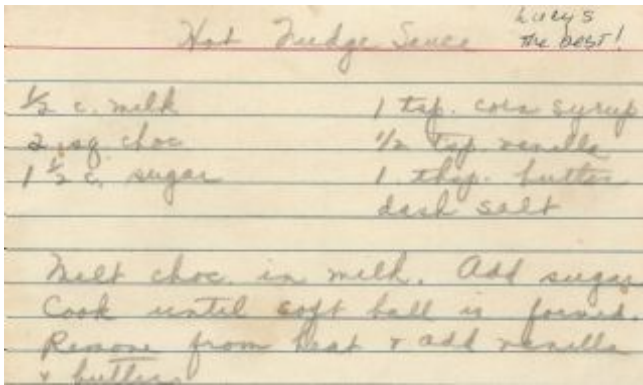 Hot Fudge Sauce
Lucy's
the best!
1/2 c. milk
2 sq. choc
1 1/2 c. sugar
1 tsp. corn syrup
1/2 tsp. vanilla
1 tbsp. butter
dash salt
Melt choc. in milk. Add sugar
Cook until soft ball is formed.
Remove from heat & add vanilla
& butter